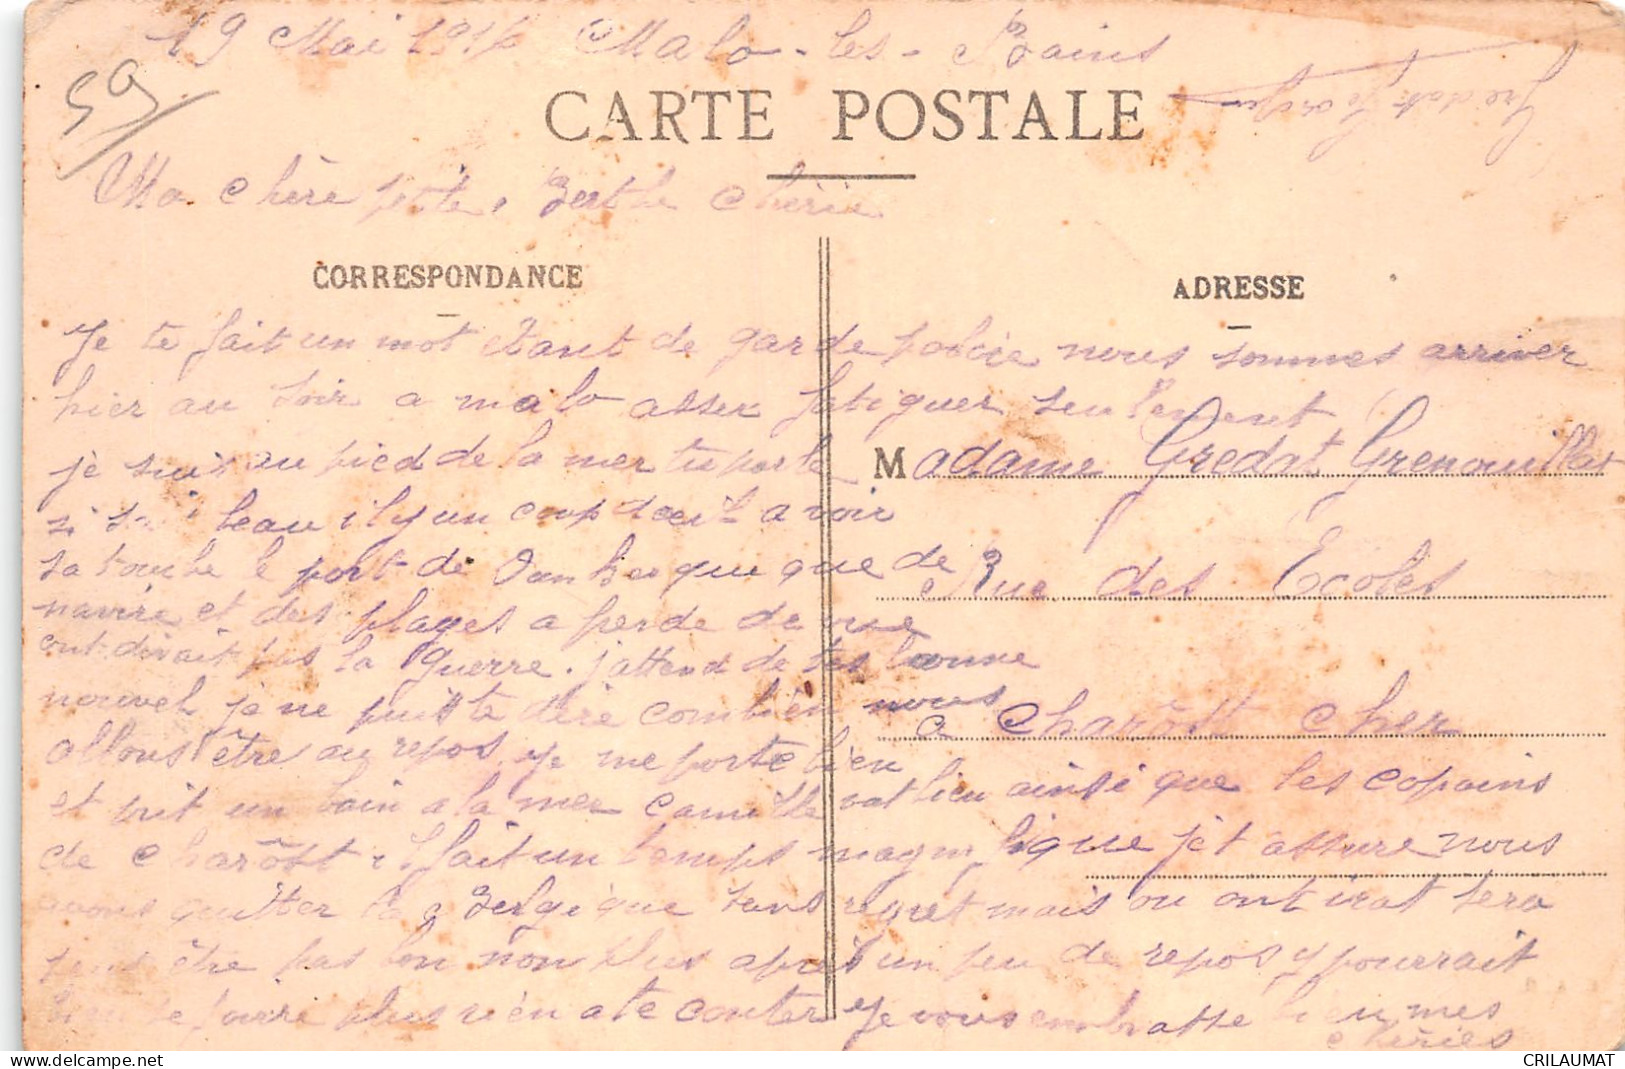 19 Mai 1916 Malo-les-Bains
59
Gredat Georges
CARTE POSTALE
Ma chère petite Berthe chérie
CORRESPONDANCE
ADRESSE
Je te fait un mot étant de garde police nous sommes arriver
hier au soir a malo asser fatiguer seulement
je suis au pied de la mer tu parle
si s'est beau il y un coup d'œil a voir
sa touche le port de Dunkerque que de
navire et des plages a perde de vue
ont dirait pas la guerre. j'attend de tes bonne
nouvel je ne puis te dire combien nous
allons être au repos. je me porte bien
et prit un bain a la mer Camille vat bien ainsi que les copains
de Charôst il fait un temps magnifique je t assure nous
avons quitter la Belgique sans regret mais ou ont irat sera
peut être pas bon non plus après un peu de repos y pourrait
bien le faire plus rien a te conter je vous embrasse bien mes
chéries
Madame Gredat Grenouillat
Rue des Ecoles
a Charôst Cher
CRILAUMAT